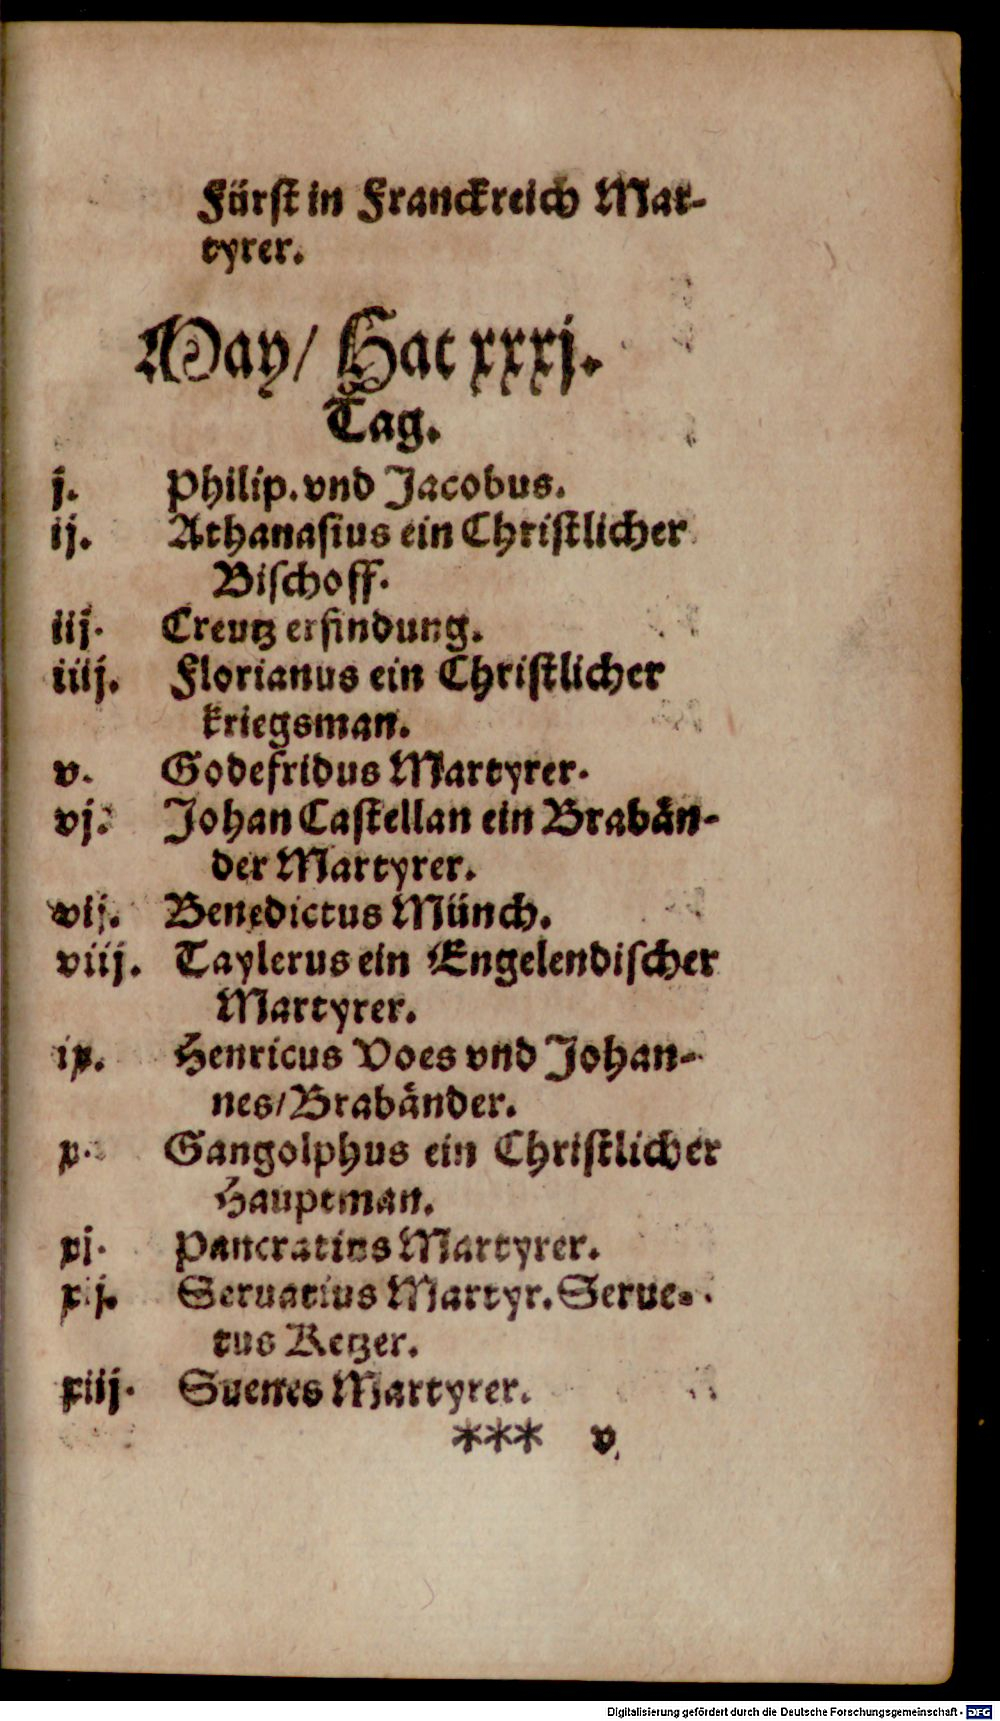 Fürſt in Franckreich Mar-
tyrer.
May/ Hat xxxj.
Tag.
j. Philip. vnd Jacobus.
ij. Athanaſius ein Chriſtlicher
Biſchoff.
iij. Creutz erfindung.
iiij. Florianus ein Chriſtlicher
kriegsman.
v. Godefridus Martyrer.
vj. Johan Caſtellan ein Brabän-
der Martyrer.
vij. Benedictus Münch.
viij. Taylerus ein Engelendiſcher
Martyrer.
ix. Henricus Voes vnd Johan-
nes/ Brabänder.
x. Gangolphus ein Chriſtlicher
Hauptman.
xj. Pancratius Martyrer.
xij. Seruatius Martyr. Serue-
tus Ketzer.
xiij. Suenes Martyrer.
*** v
Digitalisierung gefördert durch die Deutsche Forschungsgemeinschaft - DFG